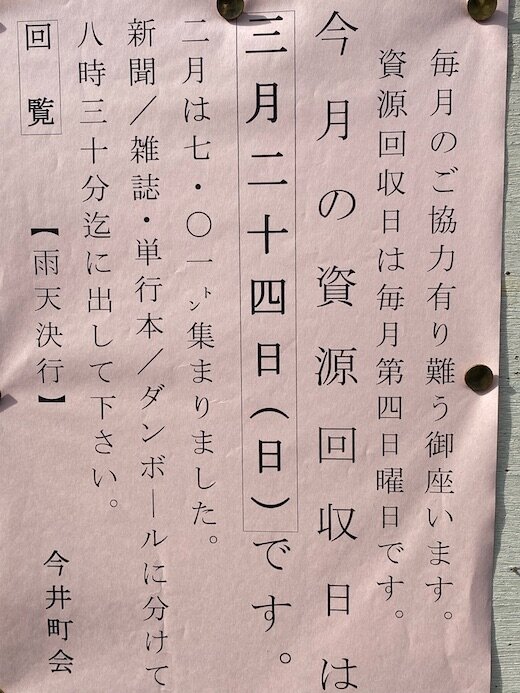 毎月のご協力有り難う御座います。
資源回収日は毎月第四日曜日です。
今月の資源回収日は
三月二十四日(日)です。
二月は七・〇一㌧集まりました。
新聞/雑誌・単行本/ダンボールに分けて
八時三十分迄に出して下さい。
回覧
【雨天決行】
今井町会